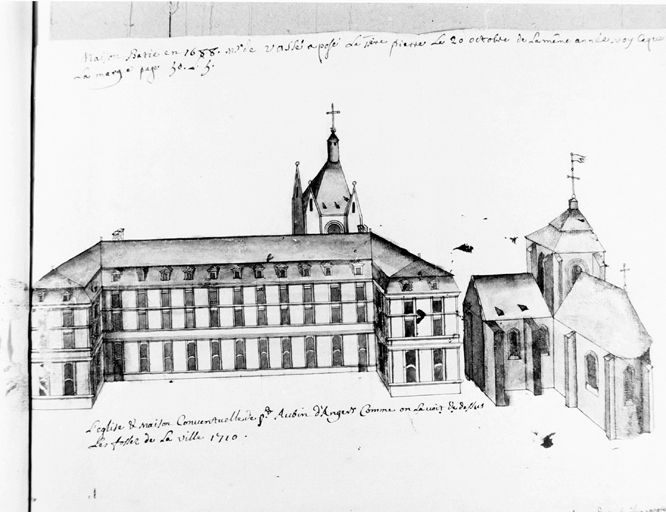 Maison Batie en 1688. Mr. Le Vassé a posé La 1ere pierre Le 20 octobre de La même année. Voy
La marge pag.
L'eglise & Maison Conventuelle de St. Aubin d'Angers Comme on La voit de dessus
Les fossez de La ville 1710.